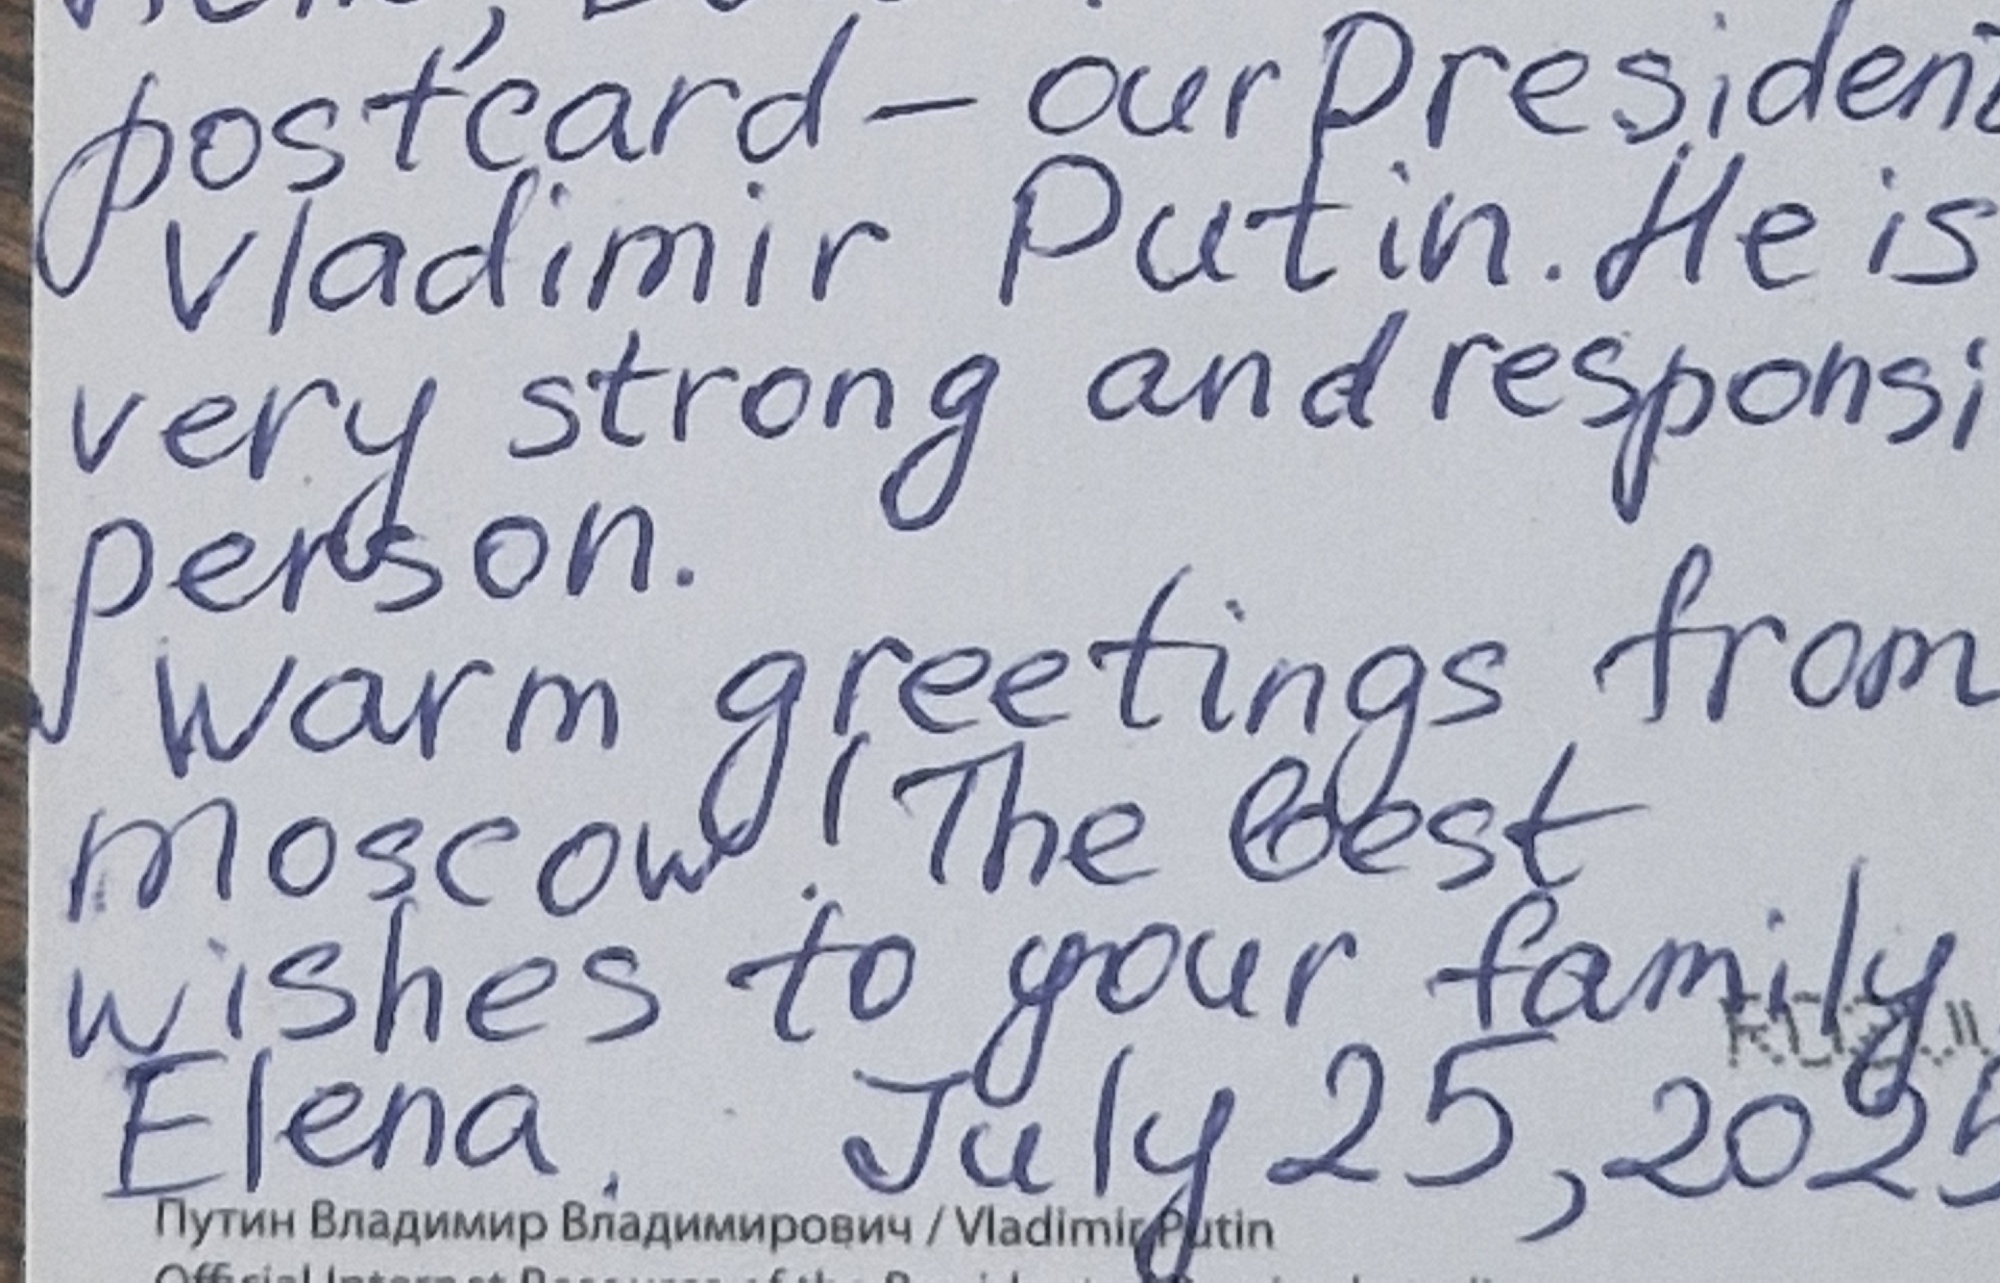 postcard – our President
Vladimir Putin. He is
very strong and responsi
person.
Warm greetings from
Moscow! The best
wishes to your family
Elena. July 25, 2025
Путин Владимир Владимирович / Vladimir Putin